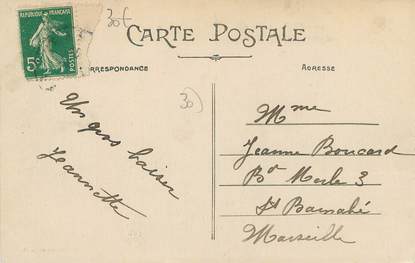 30f
RÉPUBLIQUE FRANÇAISE
5c
POSTES
CARTE POSTALE
CORRESPONDANCE
ADRESSE
30
Un gros baiser
Jeannette
Mme
Jeanne Boucard
Bd Merle 3
St Barnabé
Marseille